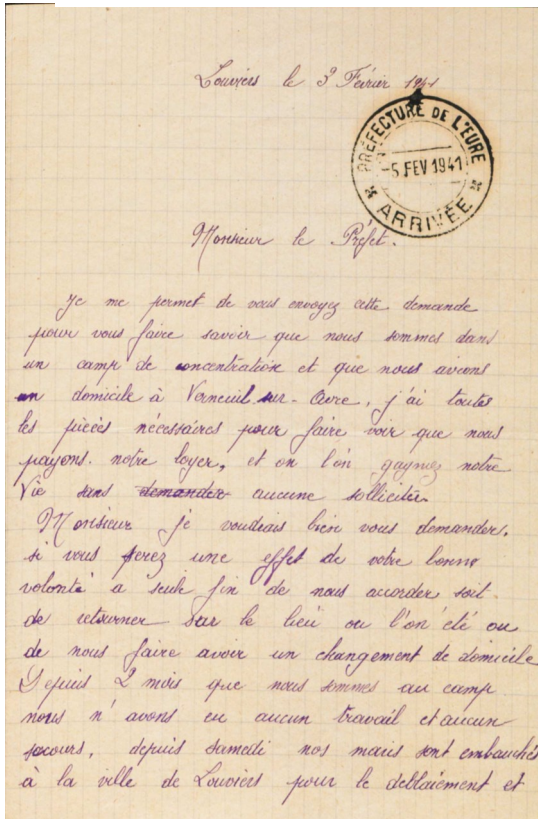 Louviers le 3 Février 1941
PRÉFECTURE DE L'EURE
-5 FEV 1941
* ARRIVÉE *
Monsieur le Préfet.
Je me permet de vous envoyez cette demande
pour vous faire savoir que nous sommes dans
un camp de concentration et que nous avions
un domicile à Verneuil sur-Avre, j'ai toutes
les pièces nécessaires pour faire voir que nous
payons. notre loyer, et on l'on gagnez notre
Vie sans demander aucune sollicitée
Monsieur je voudrais bien vous demander,
si vous ferez une effet de votre bonne
volonté a seule fin de nous accorder soit.
de retourner sur le lieu ou l'on été ou
de nous faire avoir un changement de domicile
Depuis 2 mois que nous sommes au camp
nous n'avons eu aucun travail et aucun
secours, depuis samedi nos maris sont embauchés
à la ville de Louviers pour le deblaiement et